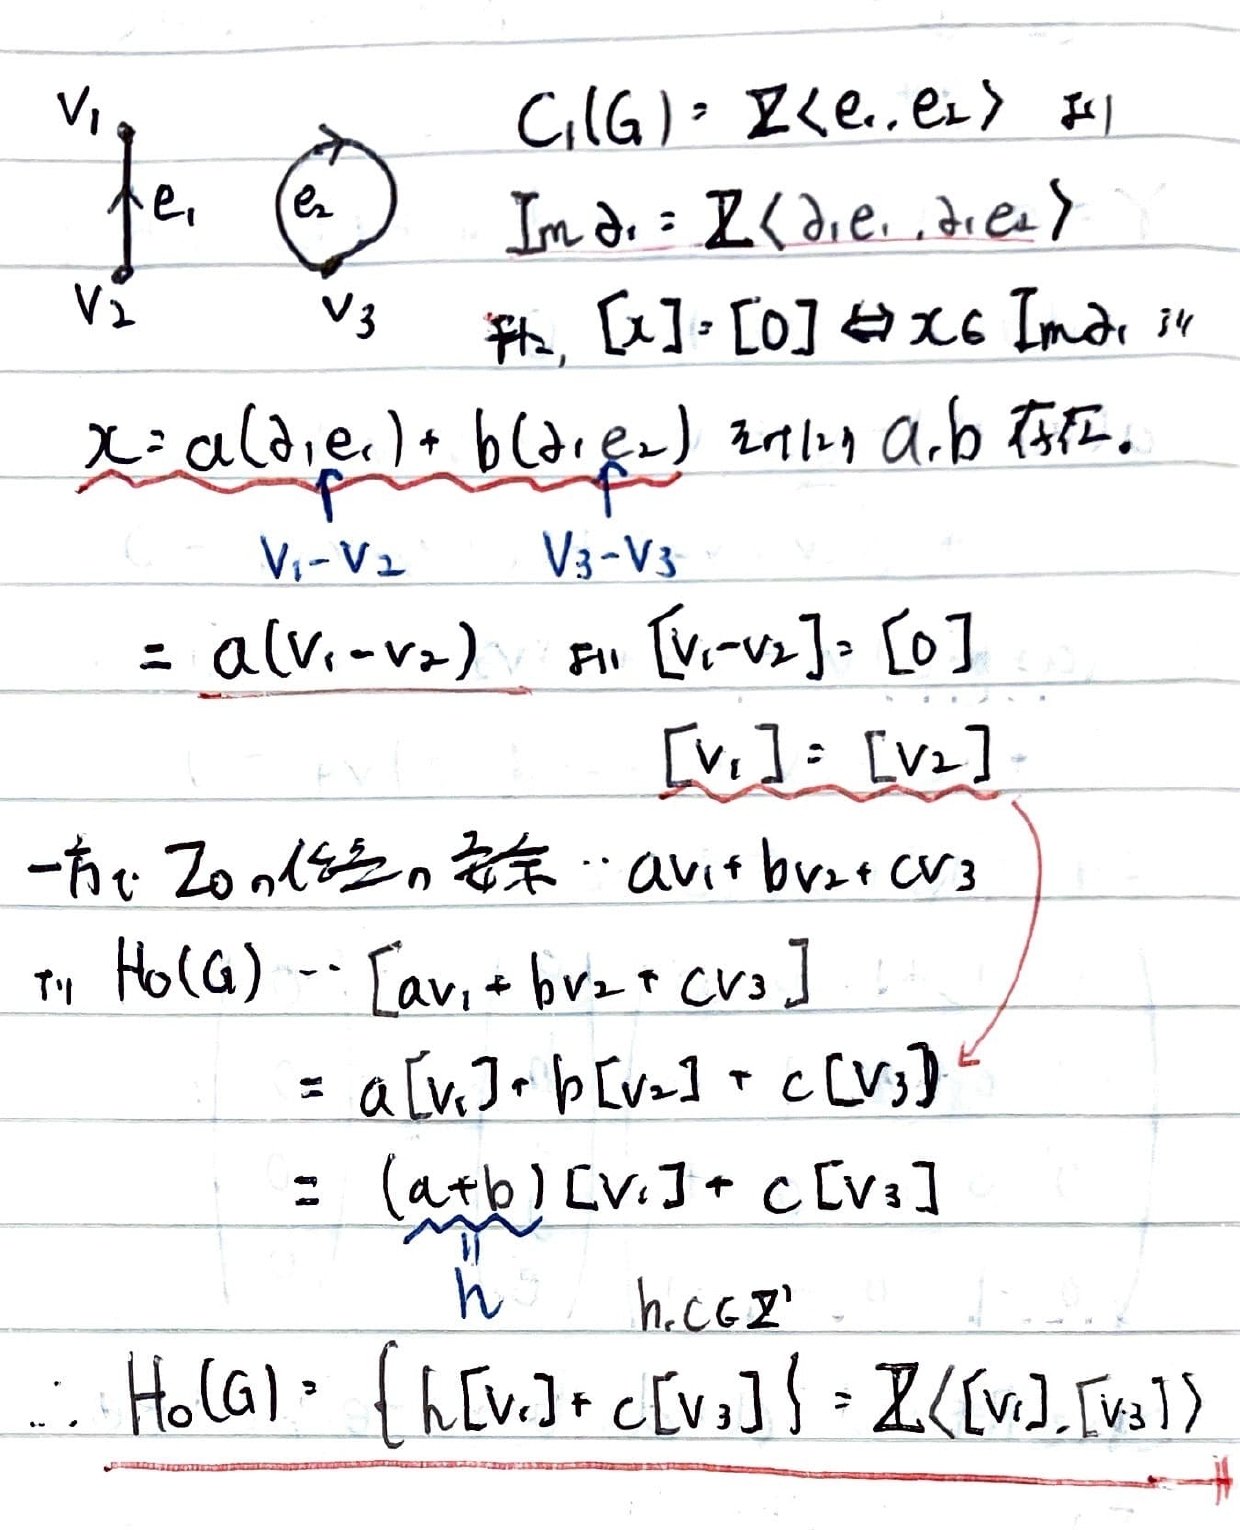 V₁
e₁
V₂
e₂
V₃
C₁(G) = ℤ<e₁, e₂> より
Im ∂₁ = ℤ<∂₁e₁, ∂₁e₂>
また, [x] = [0] ⇔ x ∈ Im ∂₁ より
x = a(∂₁e₁) + b(∂₁e₂) を みたす a, b 存在.
V₁-V₂ V₃-V₃
= a(V₁-V₂) より [V₁-V₂] = [0]
[V₁] = [V₂]
一方で Z₀の任意の要素 … aV₁ + bV₂ + cV₃
より H₀(G) … [aV₁ + bV₂ + cV₃]
= a[V₁] + b[V₂] + c[V₃]
= (a+b)[V₁] + c[V₃]
=
h h, c ∈ ℤ
∴ H₀(G) = {h[V₁] + c[V₃]} = ℤ<[V₁], [V₃]>